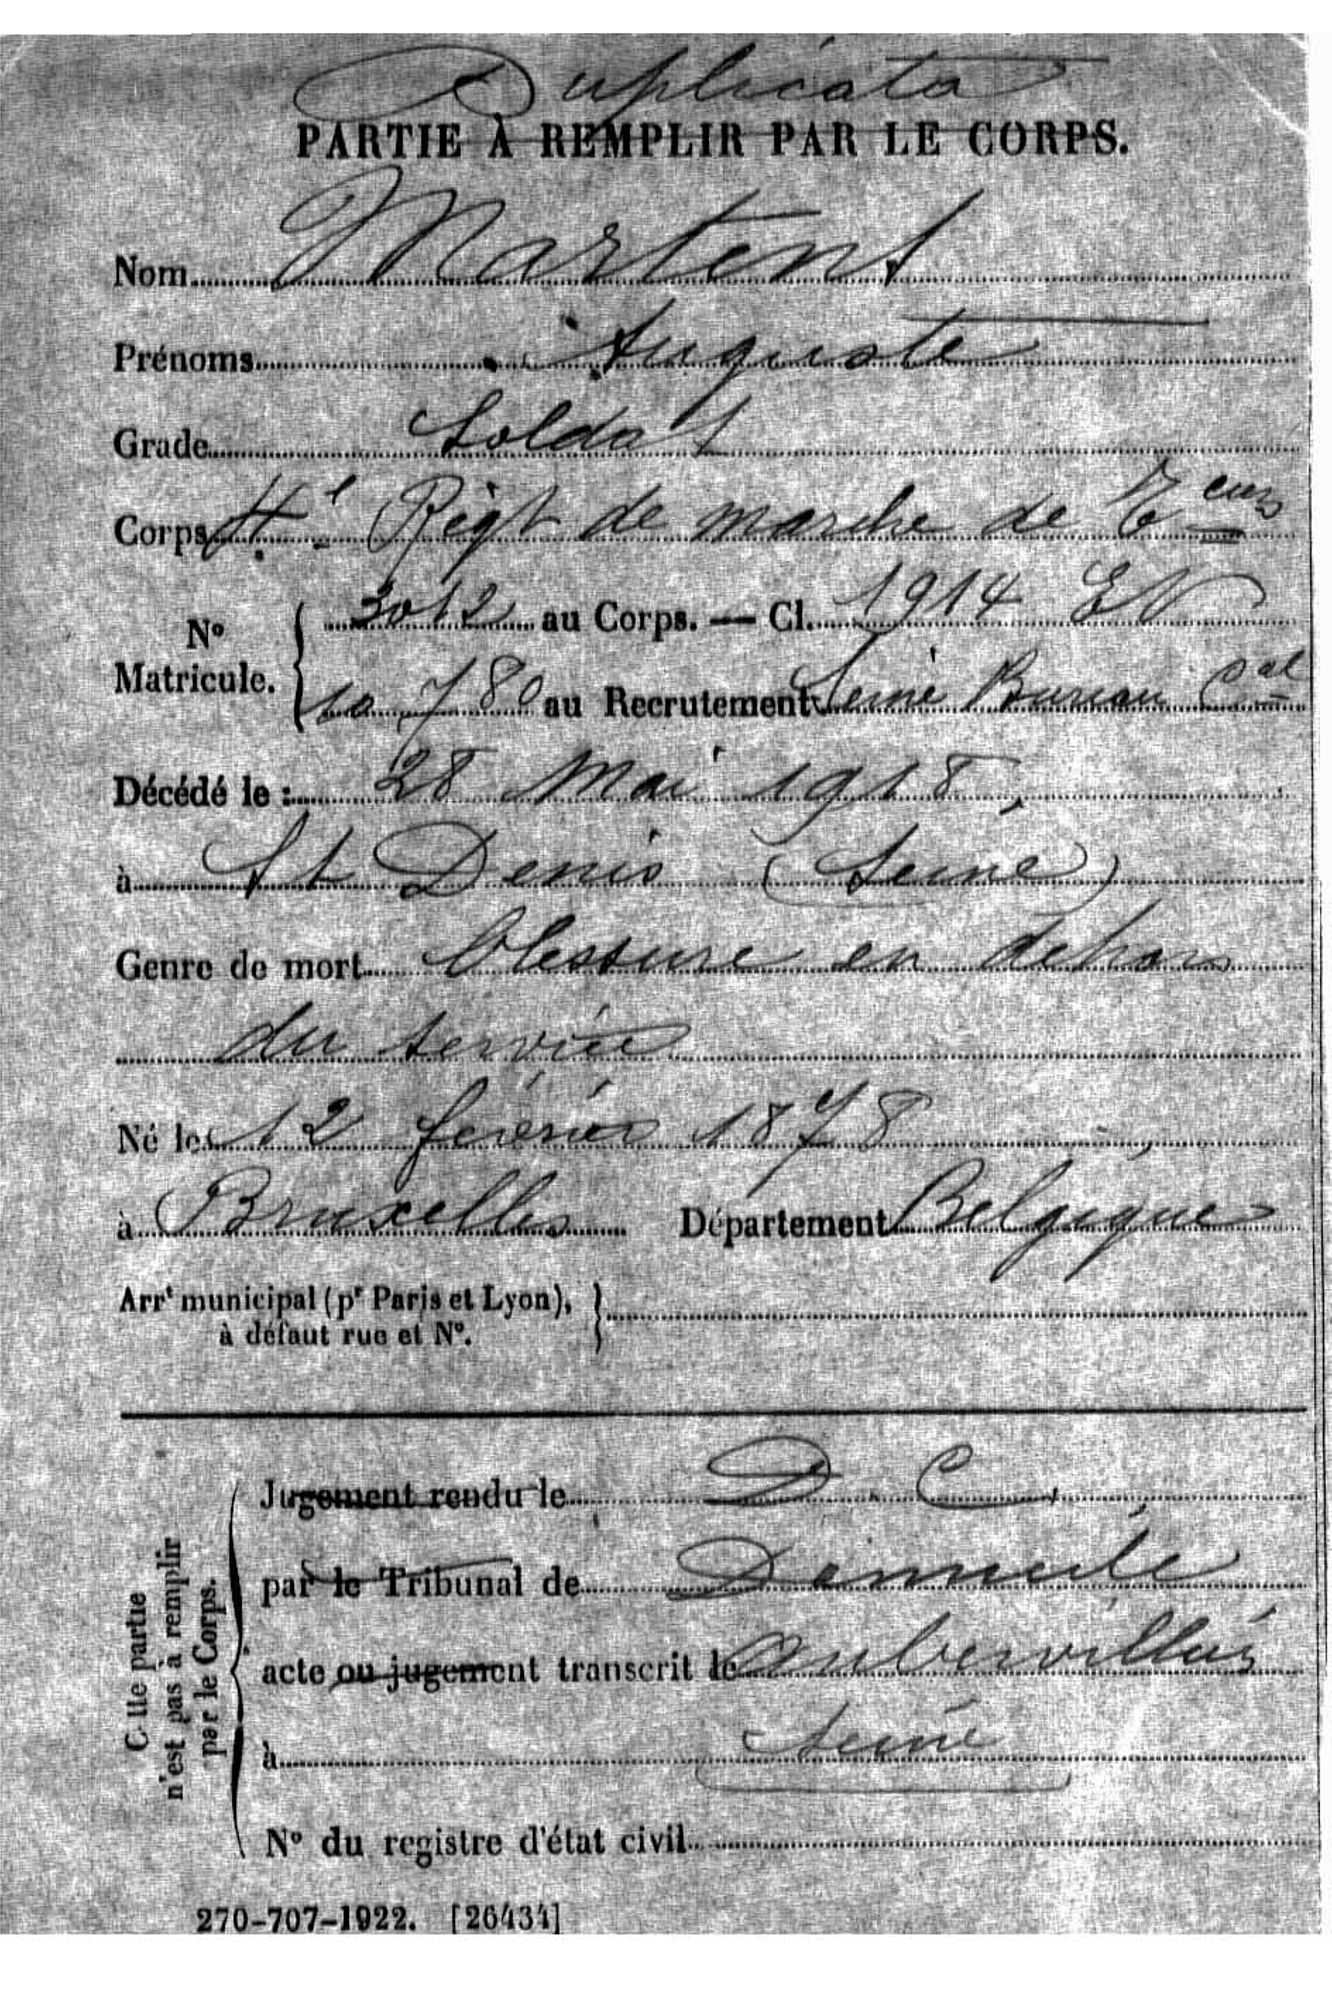 Duplicata
PARTIE À REMPLIR PAR LE CORPS.
Nom Martens
Prénoms Auguste
Grade Soldat
Corps 4e Régt de marche de Teurs
No Matricule. 3012 au Corps. — Cl. 1914 EV
10780 au Recrutement Seine Bureau Cal
Décédé le : 28 Mai 1918.
à St Denis (Seine)
Genre de mort blessure en dehors
du service
Né le 12 février 1878
à Bruxelles Département Belgique
Arrt municipal (pr Paris et Lyon),
à défaut rue et No.
Cette partie
n'est pas à remplir
par le Corps.
Jugement rendu le D. C.
par le Tribunal de Domicile
acte ou jugement transcrit le Aubervilliers
à Seine
No du registre d'état civil
270-707-1922. [26434]